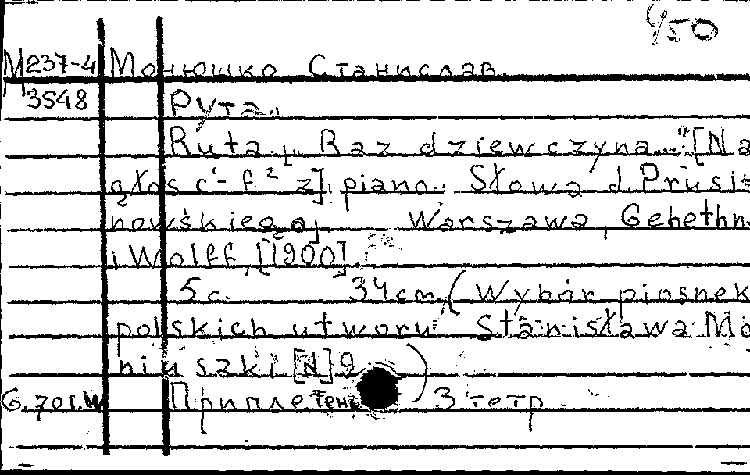 450
М237-4 Монюшко Станислав.
3548 Рута.
Ruta. "Raz dziewczyna..." [Na
głos c'-f² z] piano. Słowa J. Prusi
nowskiego. Warszawa, Gebethn
i Wolff, [1900].
5 c. 34 cm. (Wybór piosnek
polskich utworu Stanisława Mo
niuszki [N] 9)
G.701.W Приплетено 3 тетр.